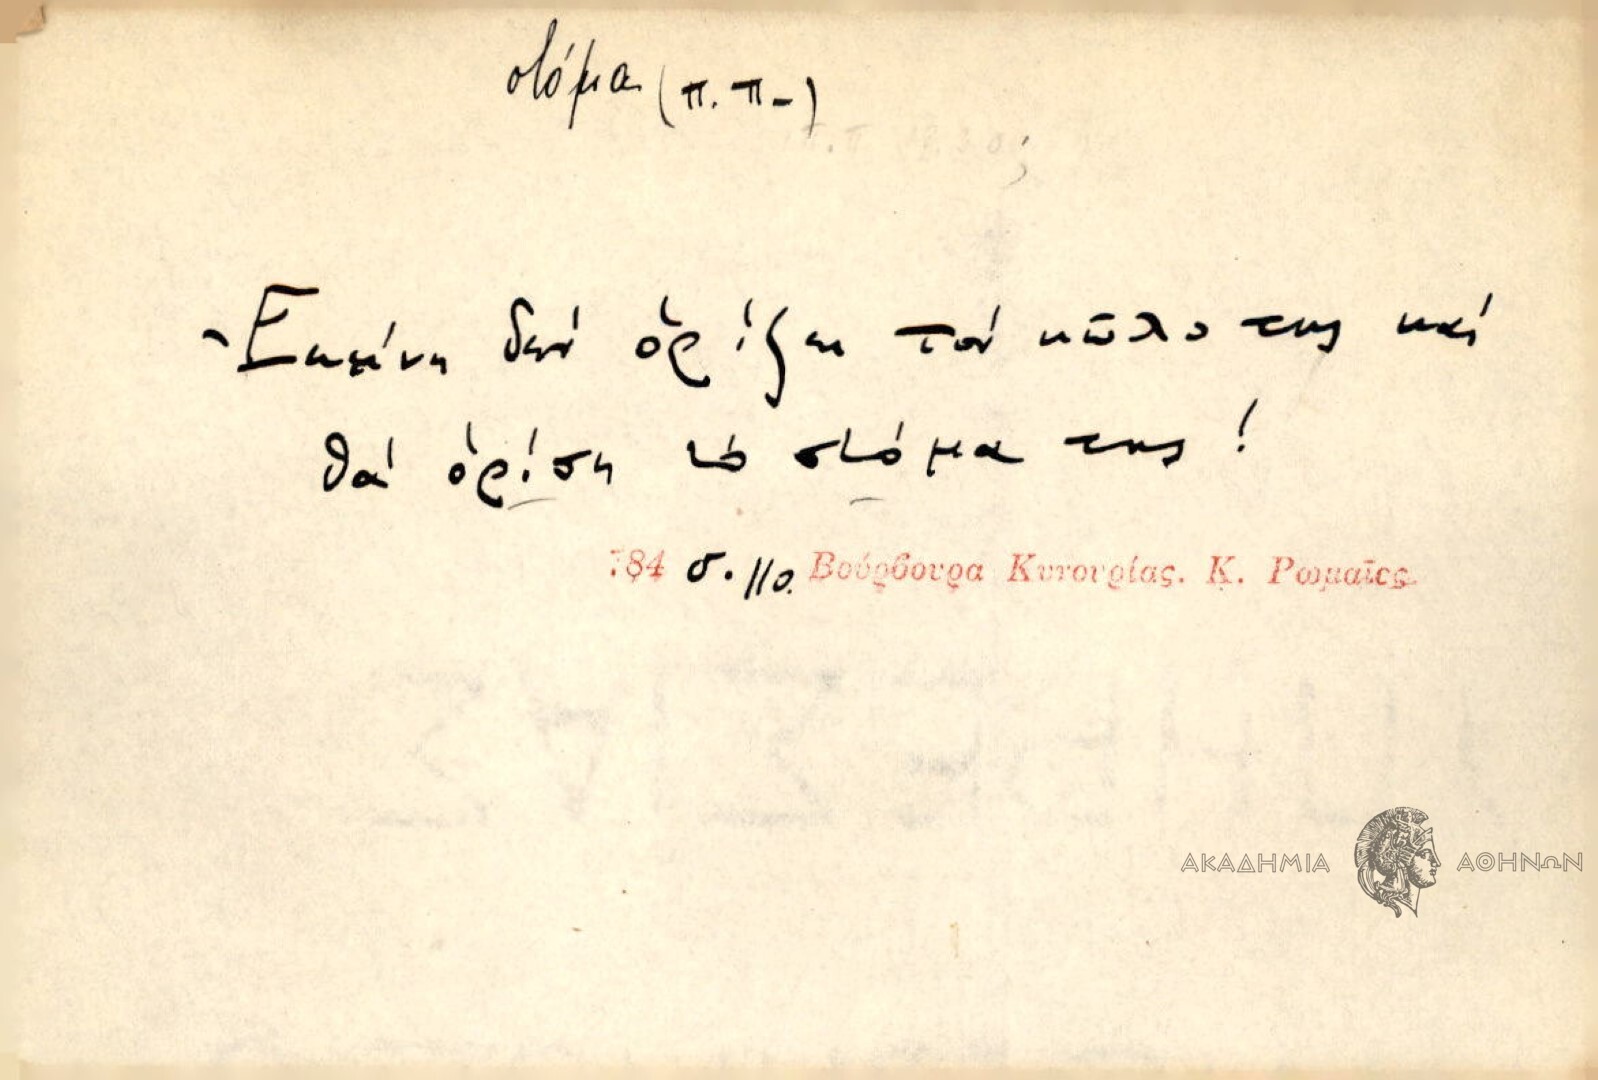 στόμα (π.π-)
Ἐκείνη δέν ὁρίζει τόν κῶλο της καί
θά ὁρίση τό στόμα της!
784 σ. 110. Βούρβουρα Κυνουρίας. Κ. Ρωμαῖος
ΑΚΑΔΗΜΙΑ ΑΘΗΝΩΝ